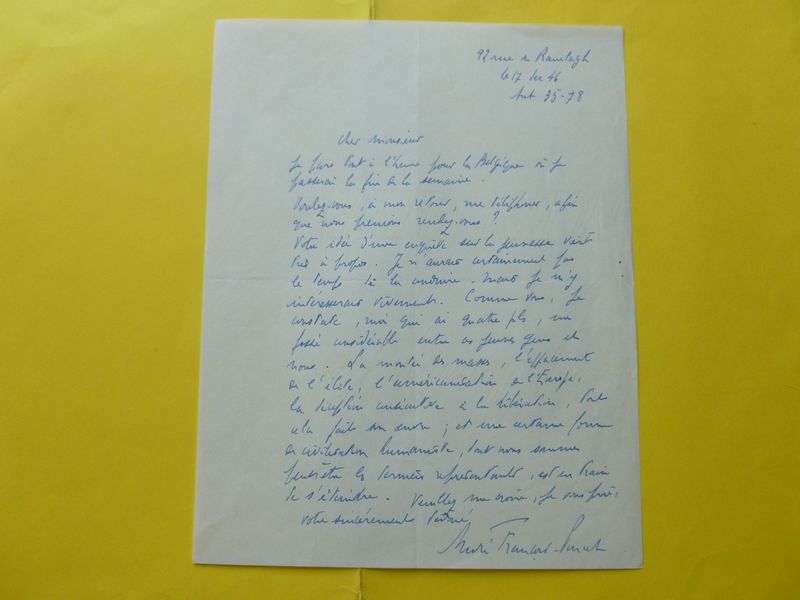 92 rue du Ranelagh
le 17 Dec 46
Aut 35-78
Cher monsieur
Je pars tout à l'heure pour la Belgique où je
passerai la fin de la semaine.
Voulez-vous, à mon retour, me téléphoner, afin
que nous prenions rendez-vous ?
Votre idée d'une enquête sur la jeunesse vient
très à propos. Je n'aurais certainement pas
le temps de la conduire. mais je m'y
intéresserais vivement. Comme vous, je
constate, moi qui ai quatre fils, un
fossé considérable entre ces jeunes gens et
nous. La montée des masses, l'effacement
de l'élite, l'américanisation de l'Europe,
la déception consécutive à la libération, tout
cela a fait son œuvre ; et une certaine forme
de civilisation humaniste, dont nous sommes
peut-être les derniers représentants, est en train
de s'éteindre. Veuillez me croire, je vous prie,
votre sincèrement dévoué
André François-Poncet